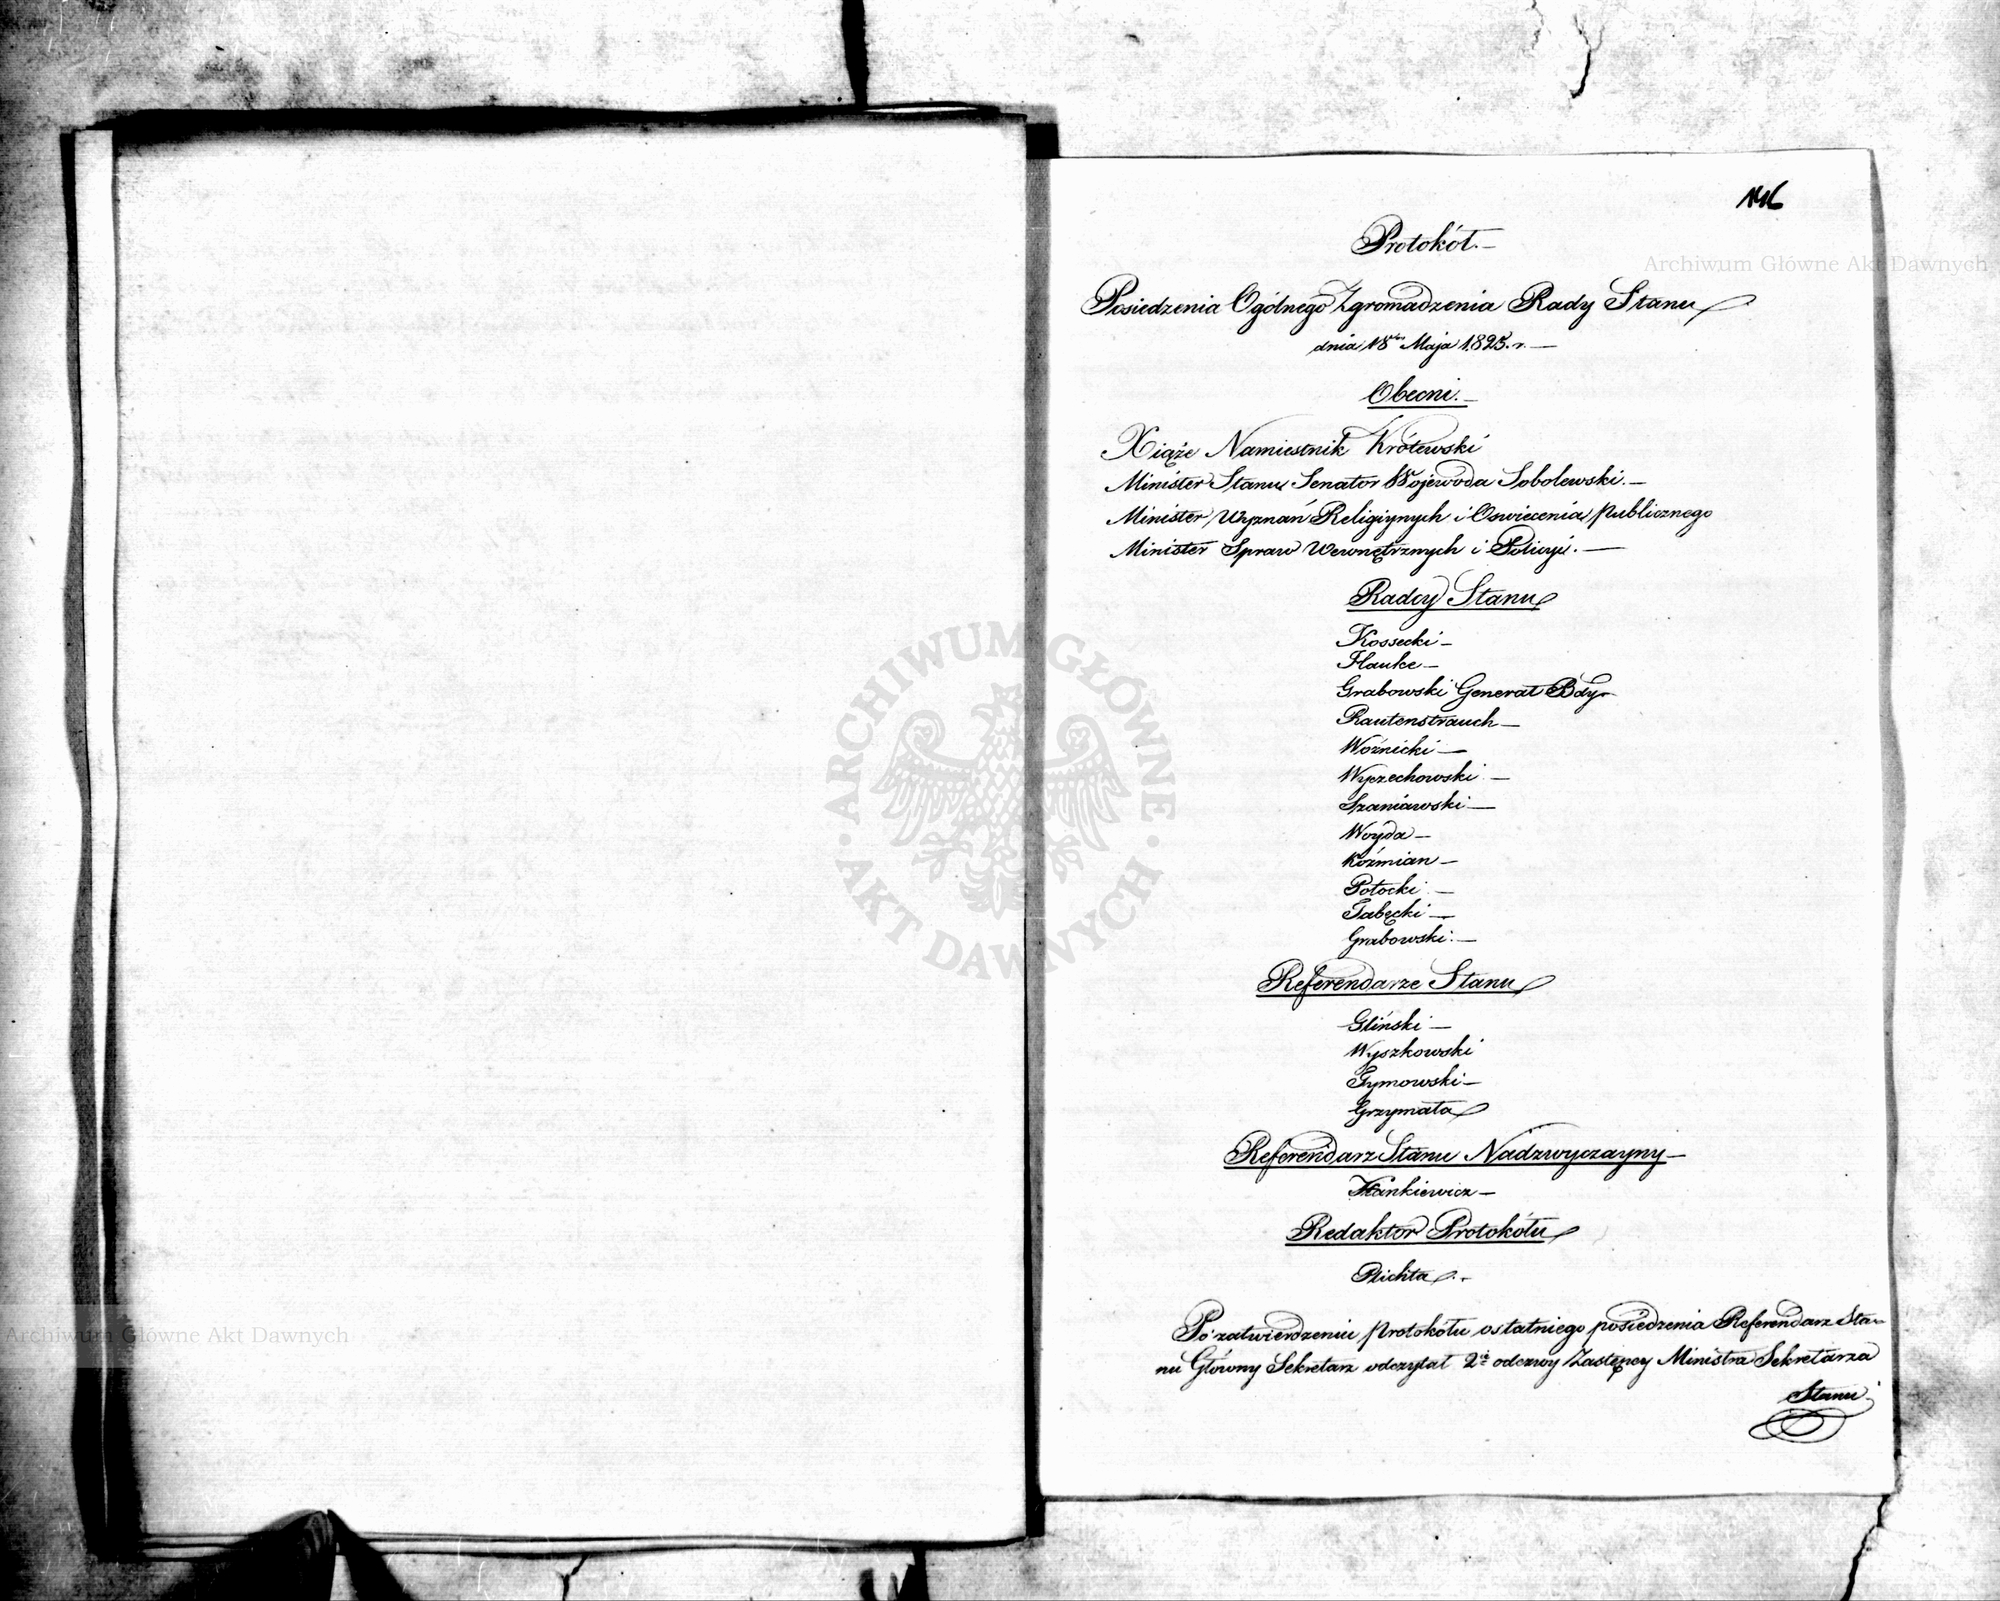 146
Protokół.—
Posiedzenia Ogólnego Zgromadzenia Rady Stanu
dnia 18 Maja 1825. r.—
Obecni.—
Xiąże Namiestnik Królewski
Minister Stanu Senator Wojewoda Sobolewski.—
Minister Wyznań Religiynych i Oswiecenia Publicznego
Minister Spraw Wewnętrznych i Policyi.—
Radcy Stanu
Kossecki—
Hauke—
Grabowski Generał Bdy
Rautenstrauch—
Woźnicki—
Wyczechowski—
Szaniawski—
Woyda—
Koźmian—
Potocki—
Tabęcki—
Grabowski.—
Referendarze Stanu
Gliński—
Wyszkowski
Tymowski—
Grzymała
Referendarz Stanu Nadzwyczayny—
Hankiewicz—
Redaktor Protokółu
Plichta.—
Po zatwierdzeniu Protokółu ostatniego posiedzenia Referendarz Sta-
nu Główny Sekretarz odczytał 2ie odezwy Zastępcy Ministra Sekretarza
Stanu
Archiwum Główne Akt Dawnych
ARCHIWUM GŁÓWNE · AKT DAWNYCH ·
Archiwum Główne Akt Dawnych